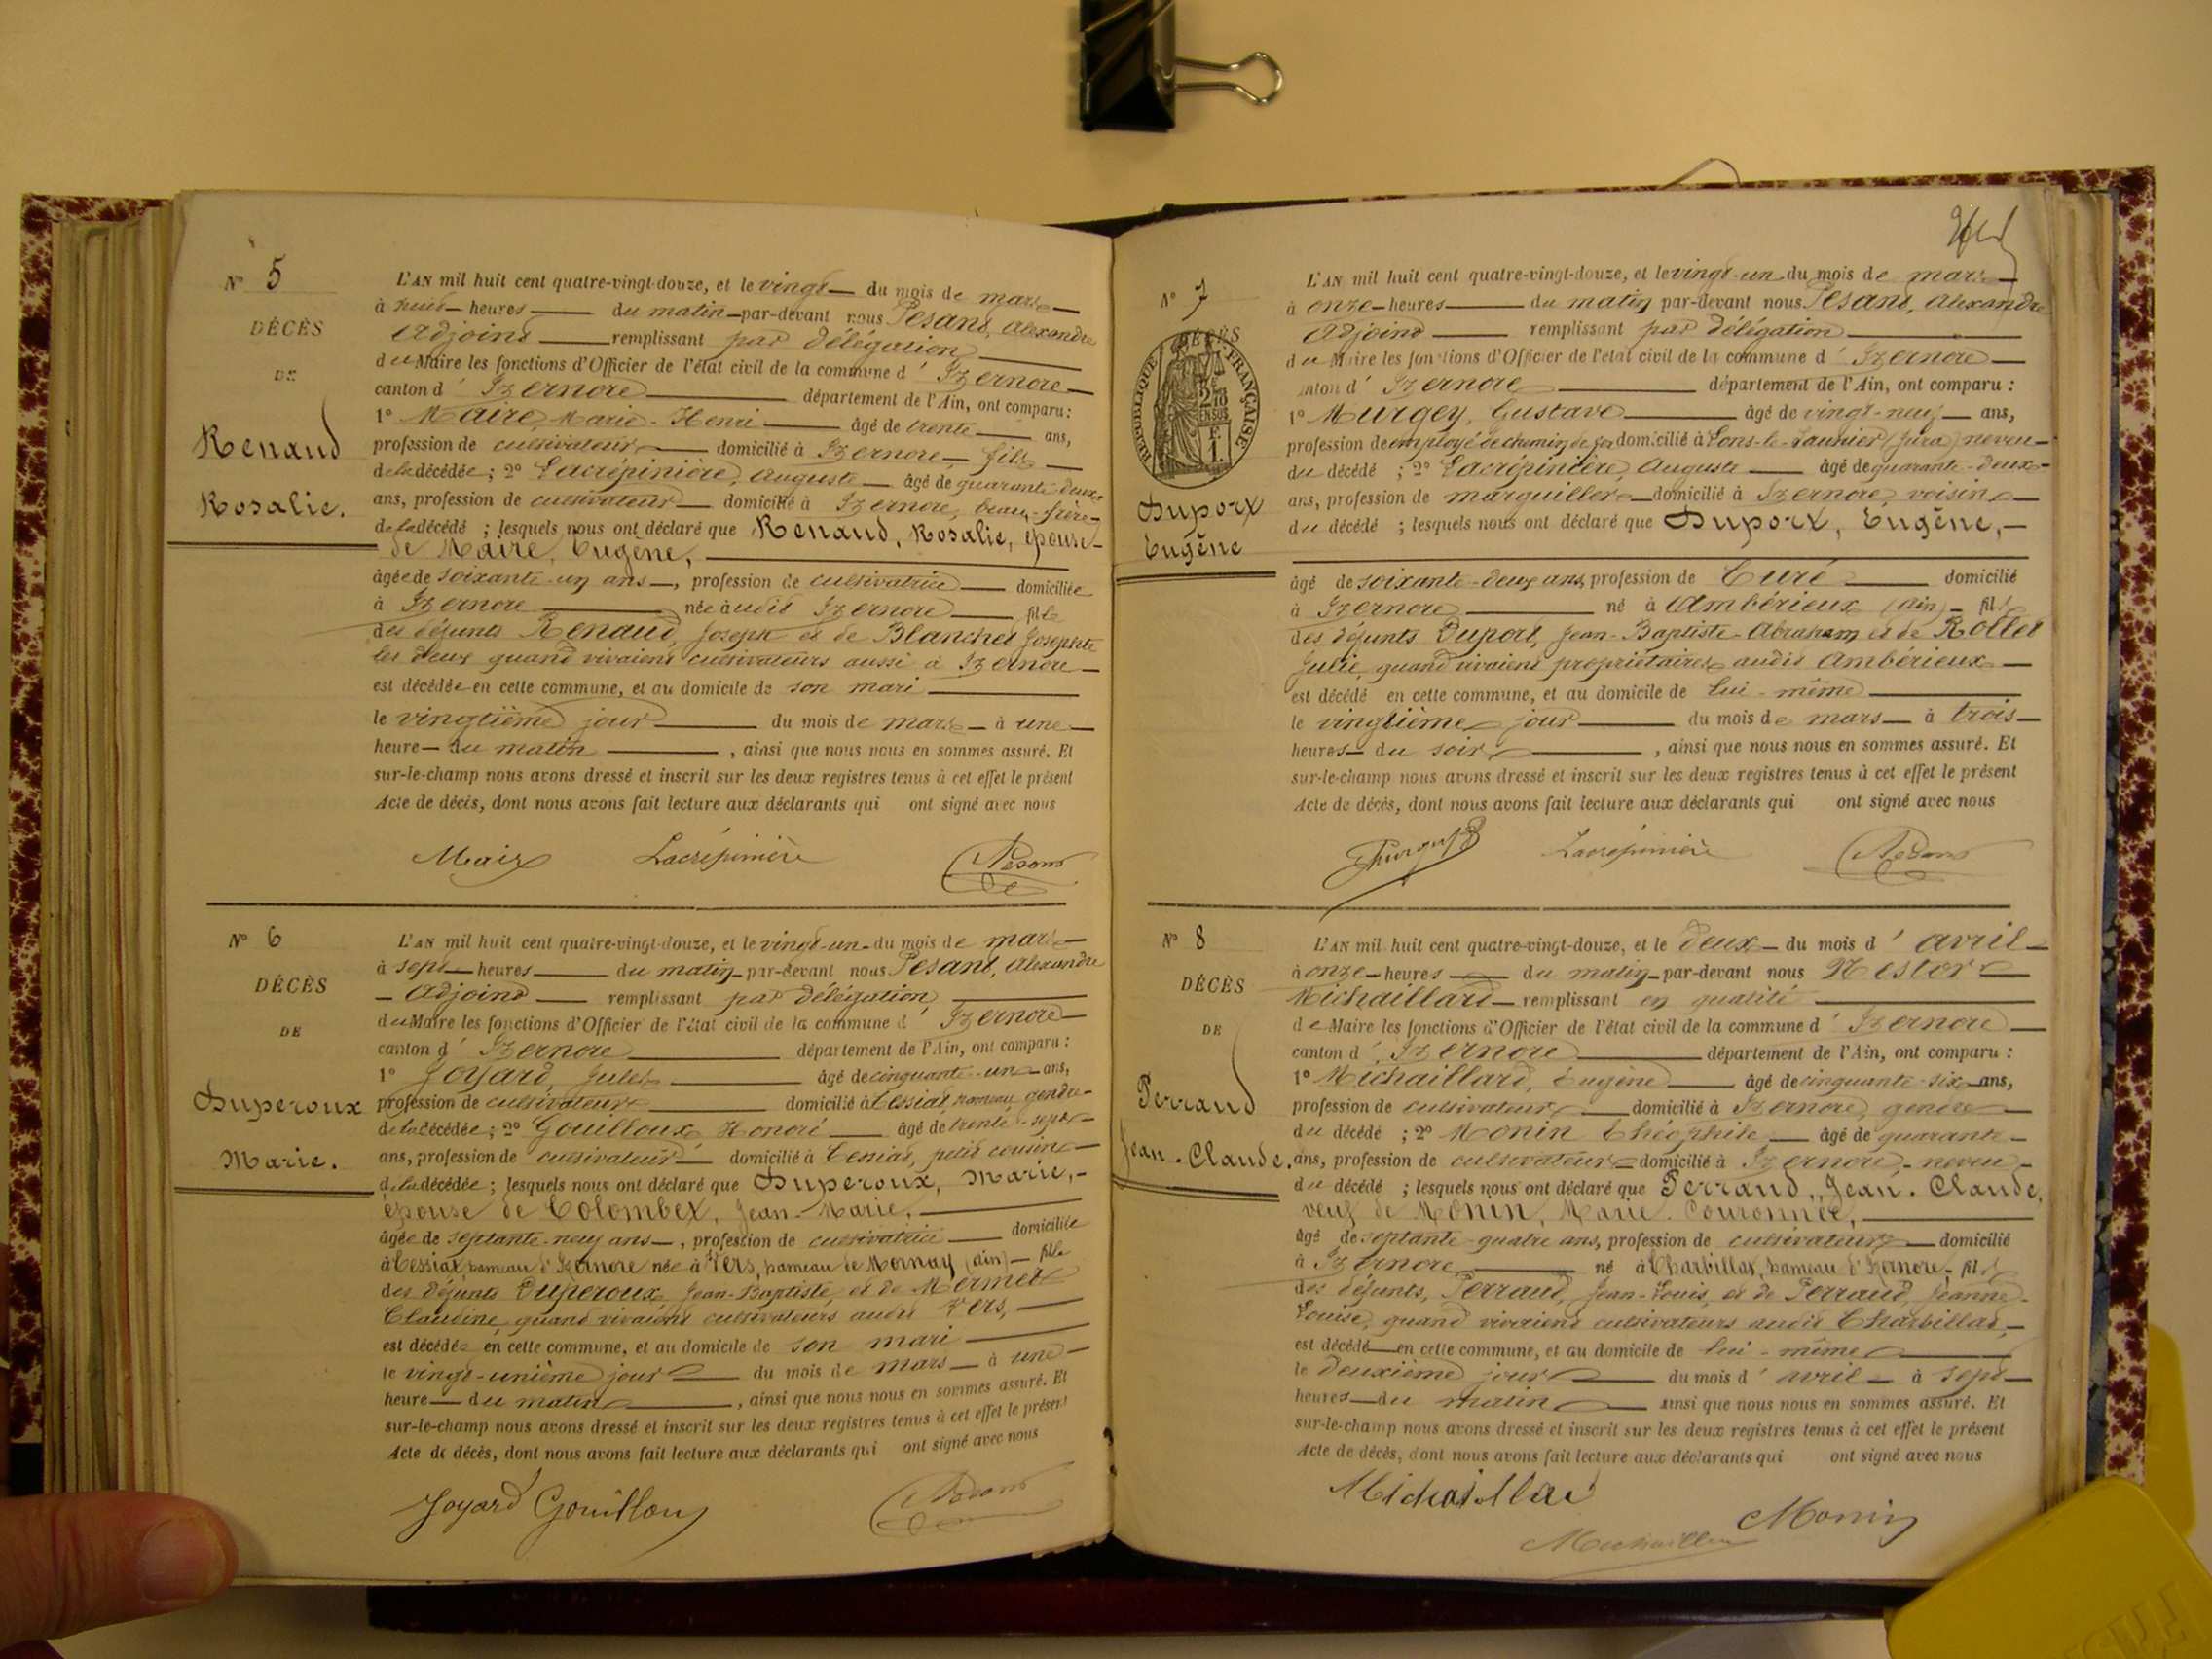 N° 5
DÉCÈS
DE
Renaud
Rosalie.
L'AN mil huit cent quatre-vingt-douze, et le vingt du mois de mars
à huit heures du matin par-devant nous Pesant, Alexandre
Adjoint remplissant par délégation
du Maire les fonctions d'Officier de l'état civil de la commune d'Izernore
canton d'Izernore département de l'Ain, ont comparu :
1° Maire, Marie-Henri âgé de trente ans,
profession de cultivateur domicilié à Izernore, fils
de la décédée ; 2° Lacrépinière, Auguste âgé de quarante-deux
ans, profession de cultivateur domicilié à Izernore, beau-frère
de la décédé ; lesquels nous ont déclaré que Renaud, Rosalie, épouse
de Maire, Eugène,
âgée de soixante-un ans, profession de cultivatrice domiciliée
à Izernore née audit Izernore fille
des défunts Renaud, Joseph et de Blanchet Josephte
les deux quand vivaient cultivateurs aussi à Izernore
est décédée en cette commune, et au domicile de son mari
le vingtième jour du mois de mars à une
heure du matin, ainsi que nous nous en sommes assuré. Et
sur-le-champ nous avons dressé et inscrit sur les deux registres tenus à cet effet le présent
Acte de décès, dont nous avons fait lecture aux déclarants qui ont signé avec nous
Maire Lacrépinière Pesant
N° 6
DÉCÈS
DE
Duperoux
Marie.
L'AN mil huit cent quatre-vingt-douze, et le vingt-un du mois de mars
à sept heures du matin par-devant nous Pesant, Alexandre
Adjoint remplissant par délégation
du Maire les fonctions d'Officier de l'état civil de la commune d'Izernore
canton d'Izernore département de l'Ain, ont comparu :
1° Joyard, Jules âgé de cinquante-un ans,
profession de cultivateur domicilié à Cessiat hameau gendre
de la décédée ; 2° Gouilloux Honoré âgé de trente-sept
ans, profession de cultivateur domicilié à Cessiat, petit cousin
de la décédée ; lesquels nous ont déclaré que Duperoux, Marie,
épouse de Colombet, Jean-Marie,
âgée de septante-neuf ans, profession de cultivatrice domiciliée
à Cessiat, hameau d'Izernore née à Vers, hameau de Mornay (Ain) fille
des défunts Duperoux Jean-Baptiste et de Mermet
Claudine, quand vivaient cultivateurs audit Vers,
est décédée en cette commune, et au domicile de son mari
le vingt-unième jour du mois de mars à une
heure du matin, ainsi que nous nous en sommes assuré. Et
sur-le-champ nous avons dressé et inscrit sur les deux registres tenus à cet effet le présent
Acte de décès, dont nous avons fait lecture aux déclarants qui ont signé avec nous
Joyard Gouilloux Pesant
N° 7
DÉCÈS
RÉPUBLIQUE FRANÇAISE
Duport
Eugène
L'AN mil huit cent quatre-vingt-douze, et le vingt-un du mois de mars
à onze heures du matin par-devant nous Pesant, Alexandre
Adjoint remplissant par délégation
du Maire les fonctions d'Officier de l'état civil de la commune d'Izernore
canton d'Izernore département de l'Ain, ont comparu :
1° Murgey, Gustave âgé de vingt-neuf ans,
profession de employé de chemin de fer domicilié à Lons-le-Saunier (Jura) neveu
du décédé ; 2° Lacrépinière, Auguste âgé de quarante-deux
ans, profession de marguiller domicilié à Izernore, voisin
du décédé ; lesquels nous ont déclaré que Duport, Eugène,
âgé de soixante-deux ans, profession de Curé domicilié
à Izernore né à Ambérieux (Ain) fils
des défunts Duport, Jean-Baptiste-Abraham et de Rollet
Julie, quand vivaient propriétaires audit Ambérieux
est décédé en cette commune, et au domicile de lui-même
le vingtième jour du mois de mars à trois
heures du soir, ainsi que nous nous en sommes assuré. Et
sur-le-champ nous avons dressé et inscrit sur les deux registres tenus à cet effet le présent
Acte de décès, dont nous avons fait lecture aux déclarants qui ont signé avec nous
Lacrépinière Pesant
N° 8
DÉCÈS
DE
Perraud
Jean-Claude.
L'AN mil huit cent quatre-vingt-douze, et le deux du mois d'avril
à onze heures du matin par-devant nous Nestor
Michaillard remplissant en qualité
de Maire les fonctions d'Officier de l'état civil de la commune d'Izernore
canton d'Izernore département de l'Ain, ont comparu :
1° Michaillard, Eugène âgé de cinquante-six ans,
profession de cultivateur domicilié à Izernore, gendre
du décédé ; 2° Monin Théophile âgé de quarante
ans, profession de cultivateur domicilié à Izernore, neveu
du décédé ; lesquels nous ont déclaré que Perraud, Jean-Claude,
veuf de Monin, Marie-Couronnée,
âgé de septante-quatre ans, profession de cultivateur domicilié
à Izernore né à Charbillat, hameau d'Izernore, fils
des défunts, Perraud, Jean-Louis, et de Perraud, Jeanne-
Louise, quand vivaient cultivateurs audit Charbillat,
est décédé en cette commune, et au domicile de lui-même
le deuxième jour du mois d'avril à sept
heures du matin ainsi que nous nous en sommes assuré. Et
sur-le-champ nous avons dressé et inscrit sur les deux registres tenus à cet effet le présent
Acte de décès, dont nous avons fait lecture aux déclarants qui ont signé avec nous
Michaillard
Monin
Michaillard